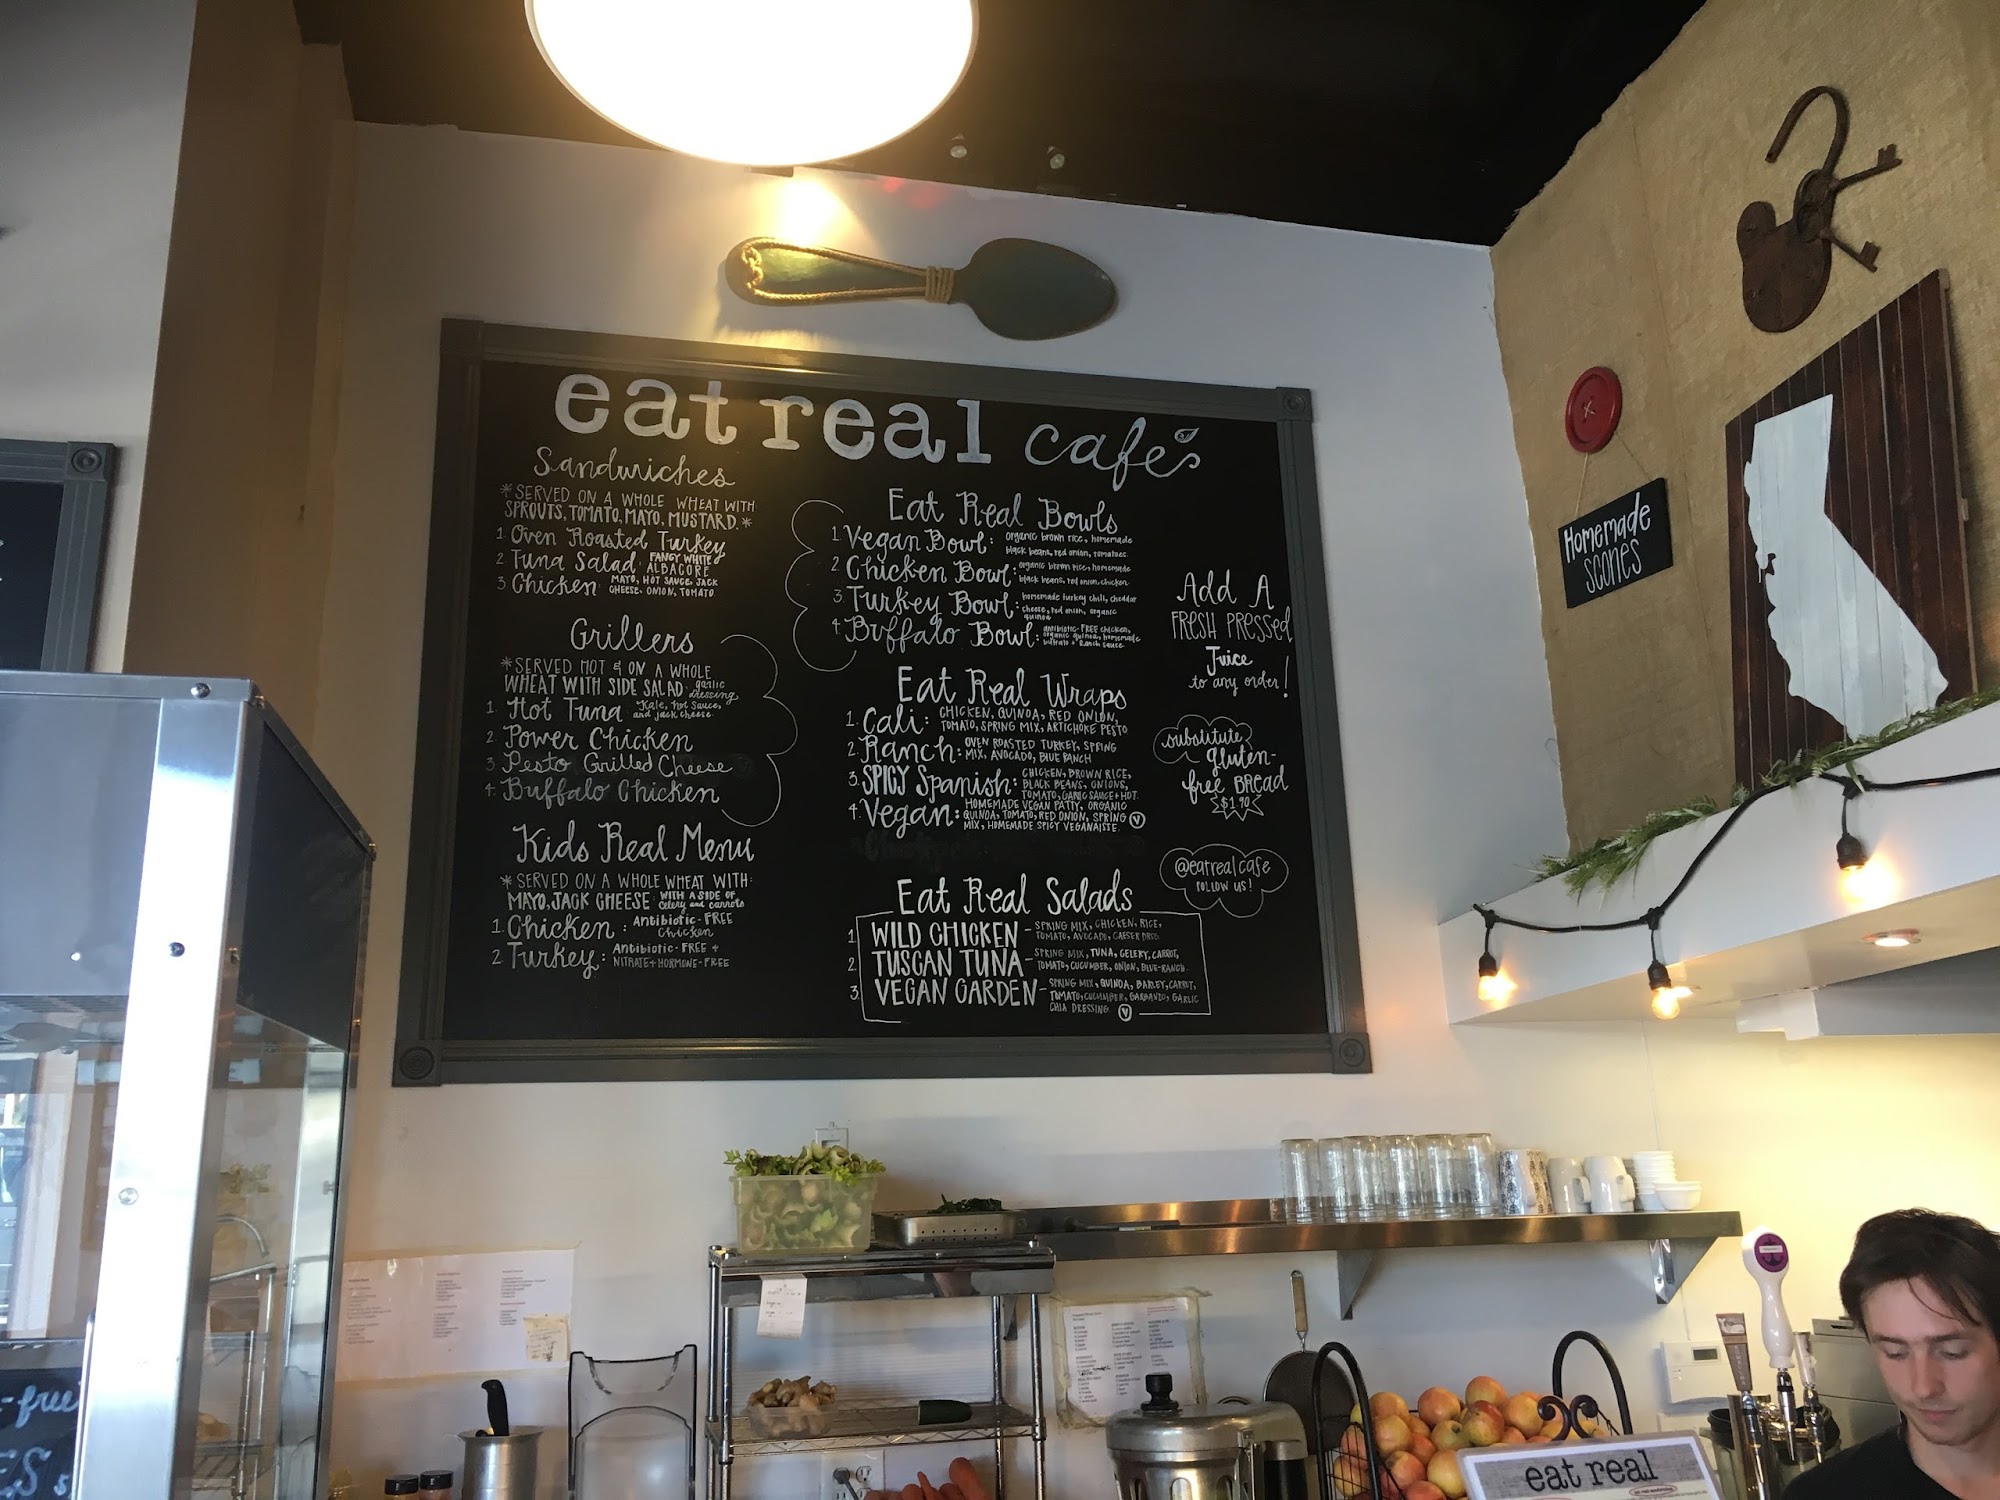 eat real café
Sandwiches
*SERVED ON A WHOLE WHEAT WITH
SPROUTS, TOMATO, MAYO, MUSTARD.*
1. Oven Roasted Turkey
2 Tuna Salad: FANCY WHITE
ALBACORE
3 Chicken: MAYO, HOT SAUCE, JACK
CHEESE, ONION, TOMATO
Grillers
*SERVED HOT & ON A WHOLE
WHEAT WITH SIDE SALAD: garlic
dressing
1. Hot Tuna: Kale, hot sauce,
and jack cheese
2. Power Chicken
3. Pesto Grilled Cheese
4. Buffalo Chicken
Kids Real Menu
*SERVED ON A WHOLE WHEAT WITH:
MAYO, JACK CHEESE WITH A SIDE OF
celery and carrots
1. Chicken: Antibiotic-FREE
Chicken
2 Turkey: Antibiotic-FREE +
NITRATE + HORMONE-FREE
Eat Real Bowls
1. Vegan Bowl: organic brown rice, homemade
black beans, red onion, tomatoes
2. Chicken Bowl: organic brown rice, homemade
black beans, red onion, chicken
3. Turkey Bowl: homemade turkey chili, cheddar
cheese, red onion, organic
quinoa
4. Buffalo Bowl: antibiotic-FREE chicken,
organic quinoa, homemade
buffalo + Ranch sauce
Eat Real Wraps
1. Cali: CHICKEN, QUINOA, RED ONION,
TOMATO, SPRING MIX, ARTICHOKE PESTO
2. Ranch: OVEN ROASTED TURKEY, SPRING
MIX, AVOCADO, BLUE RANCH
3. SPICY Spanish: CHICKEN, BROWN RICE,
BLACK BEANS, ONIONS,
TOMATO, GARLIC SAUCE + HOT.
4. Vegan: HOMEMADE VEGAN PATTY, ORGANIC
QUINOA, TOMATO, RED ONION, SPRING
MIX, HOMEMADE SPICY VEGANAISSE. V
Eat Real Salads
1. WILD CHICKEN - SPRING MIX, CHICKEN, RICE,
TOMATO, AVOCADO, CAESER DRSG.
2. TUSCAN TUNA - SPRING MIX, TUNA, CELERY, CARROT,
TOMATO, CUCUMBER, ONION, BLUE-RANCH
3. VEGAN GARDEN - SPRING MIX, QUINOA, BARLEY, CARROT,
TOMATO, CUCUMBER, GARBANZO, GARLIC
CHIA DRESSING. V
Add A
FRESH PRESSED
Juice
to any order!
substitute
gluten-
free BREAD
$1.90
@eatrealcafe
FOLLOW US!
Homemade
SCONES
-free
ES
eat real